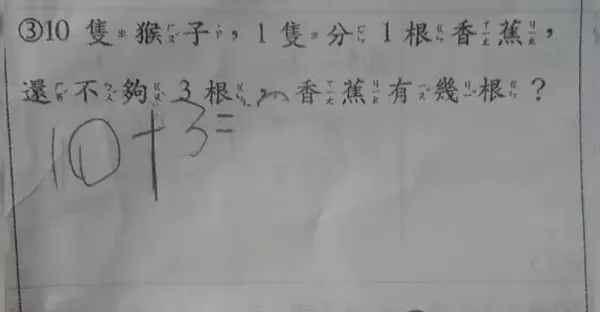 ③10 隻猴子，1 隻分 1 根香蕉，
還不夠 3 根，香蕉有幾根？
10+3=